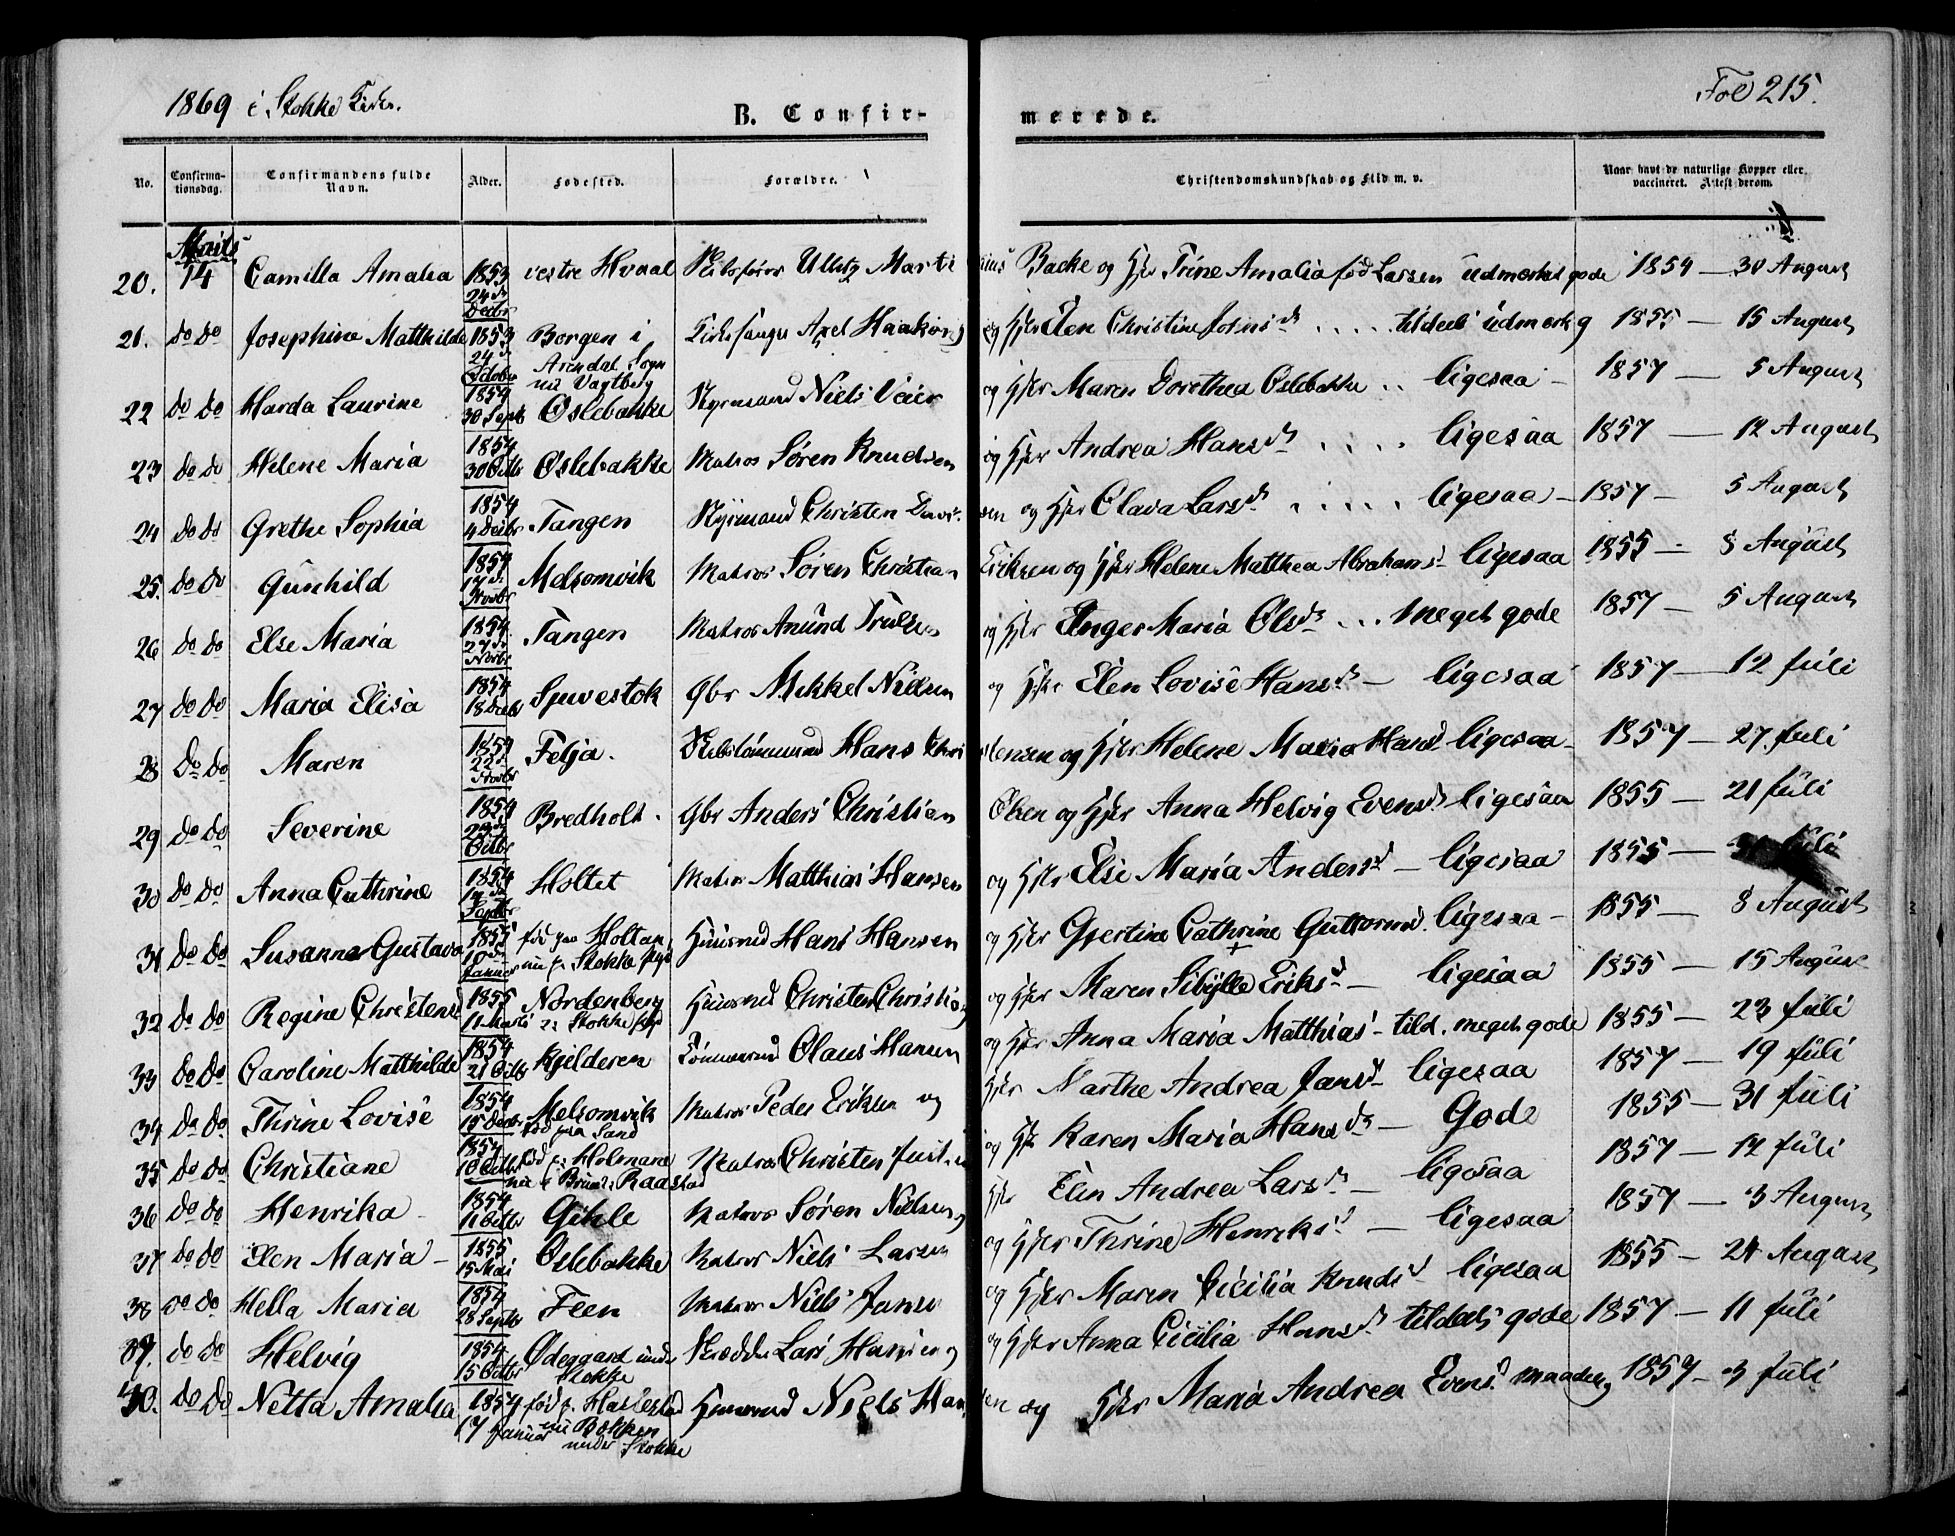 1869 i Stokke
Fol 215.
B. Confirmerede.
No. Confirmationsdag. Confirmandens fulde Navn. Alder. Fødested. Forældre. Christendomskundskab og Flid m. v. Naar havt de naturlige Kopper eller vaccineret. Attest derom.
20. 14 Camilla Amalia 1853 24 Decbr vestre Hvaal Bache og Hjer Trine Amalia fød Larsen udmerket gode 1854 — 30 August
21. do do Josephine Matthilde 1853 24 Octobr Borgen i Arendal Sogn Kirkesanger Axel og Hjer Elen Christine .... tildeels udmerk g 1855 — 15 August
22 do do Harda Laurine 1854 30 Septb Oslebakke Styrmand Niels Veier og Hjer Maren Dorothea Oslebakke .. ligesaa — 1857 — 5 August
23 do do Helene Maria 1854 30 Octbr Oslebakke Matros Søren Knudsen og Hjer Andrea Hansd .... ligesaa 1857 — 12 August
24 do do Grethe Sophia 1854 4 Decbr Tangen Styrmand Christen og Hjer Olava Larsd ..... ligesaa — 1857 — 5 August
25. do do Gunhild 1854 17d Novbr Melsomvik Matros Søren Christian Eriksen og Hjer Helene Matthea Abrahamsd ligesaa 1855 — 8 August
26 do do Else Maria 1854 27d Novbr Tangen Matros Anund Trulsen og Hjer Inger Maria Olsd ... meget gode 1857 — 5 August
27 do do Maria Elisa 1854 18 Decbr Sjuvestok Gbr Mikkel Nielsen og Hjer Elen Lovise Hansd — ligesaa 1857 — 12 Juli
28 do do Maren 1854 22d Novbr Felja. Skibstømmermand Hans Christensen og Hjer Helene Maria Hansd ligesaa — 1857 — 27 Juli
29 do do Severine 1854 Octbr Bredholt. Gbr Anders Christian Olsen og Hjer Anna Helvig Evensd ligesaa 1855 — 21 Juli
30 do do Anna Cathrine 1854 Septbr Holtet Matros Matthias Hansen og Hjer Else Maria Andersd — ligesaa 1855 — Juli
31 do do Susanna Gustava 1855 10d Januar fød paa Holtan nu p. Stokke Huusmd Hans Hansen og Hjer Gjertine Cathrine Guttormsd. ligesaa — 1855 — 8 August
32 do do Regine Christense 1855 11 Marts Nordenberg Stokke Huusmd Christen og Hjer Maren Sibylle Eriksd — ligesaa 1855 — 15 August
33 do do Caroline Matthilde 1854 21 Octbr Kjilderen Tømmermd Olaus Hansen og Hjer Anna Maria Matthiasd — tild. meget gode 1855 — 23 Juli
34 do do Thrine Lovise 1854 15 Decbr Melsomvik fød paa Sand Matros Peder Eriksen og Hjer Marthe Andrea Jansd ligesaa 1857 — 19 Juli
35 do do Christiane 1854 10 Octbr fød p. Holmane Matros Christen og Hjer Karen Maria Hansd — Gode 1855 — 31 Juli
36 do do Henrika 1854 11 Octbr Gihle Matros Søren Nielsen og Hjer Elin Andrea Larsd — ligesaa 1857 — 12 Juli
37 do do Elen Maria — 1855 15 Mai Oslebakke Matros Niels Larsen og Hjer Thrine Henriksd — ligesaa 1857 — 3 August
38 do do Hella Maria 1854 28 Septbr Feen Matros Niels Jansen og Hjer Maren Cicilia Knudsd ligesaa 1855 — 24 August
39. do do Helvig 1854 15 Octbr Ødegaard under Stokke Skrædder Lars Hansen og Hjer Anna Cicilia Hansd tildeels gode 1857 — 11 Juli
40. do do Netta Amalia 1854 17 Januar fød p. Haslestad nu Bokken under Stokke Huusmd Niels Hansen og Hjer Maria Andrea Evensd. maadelig 1857 — 3 Juli